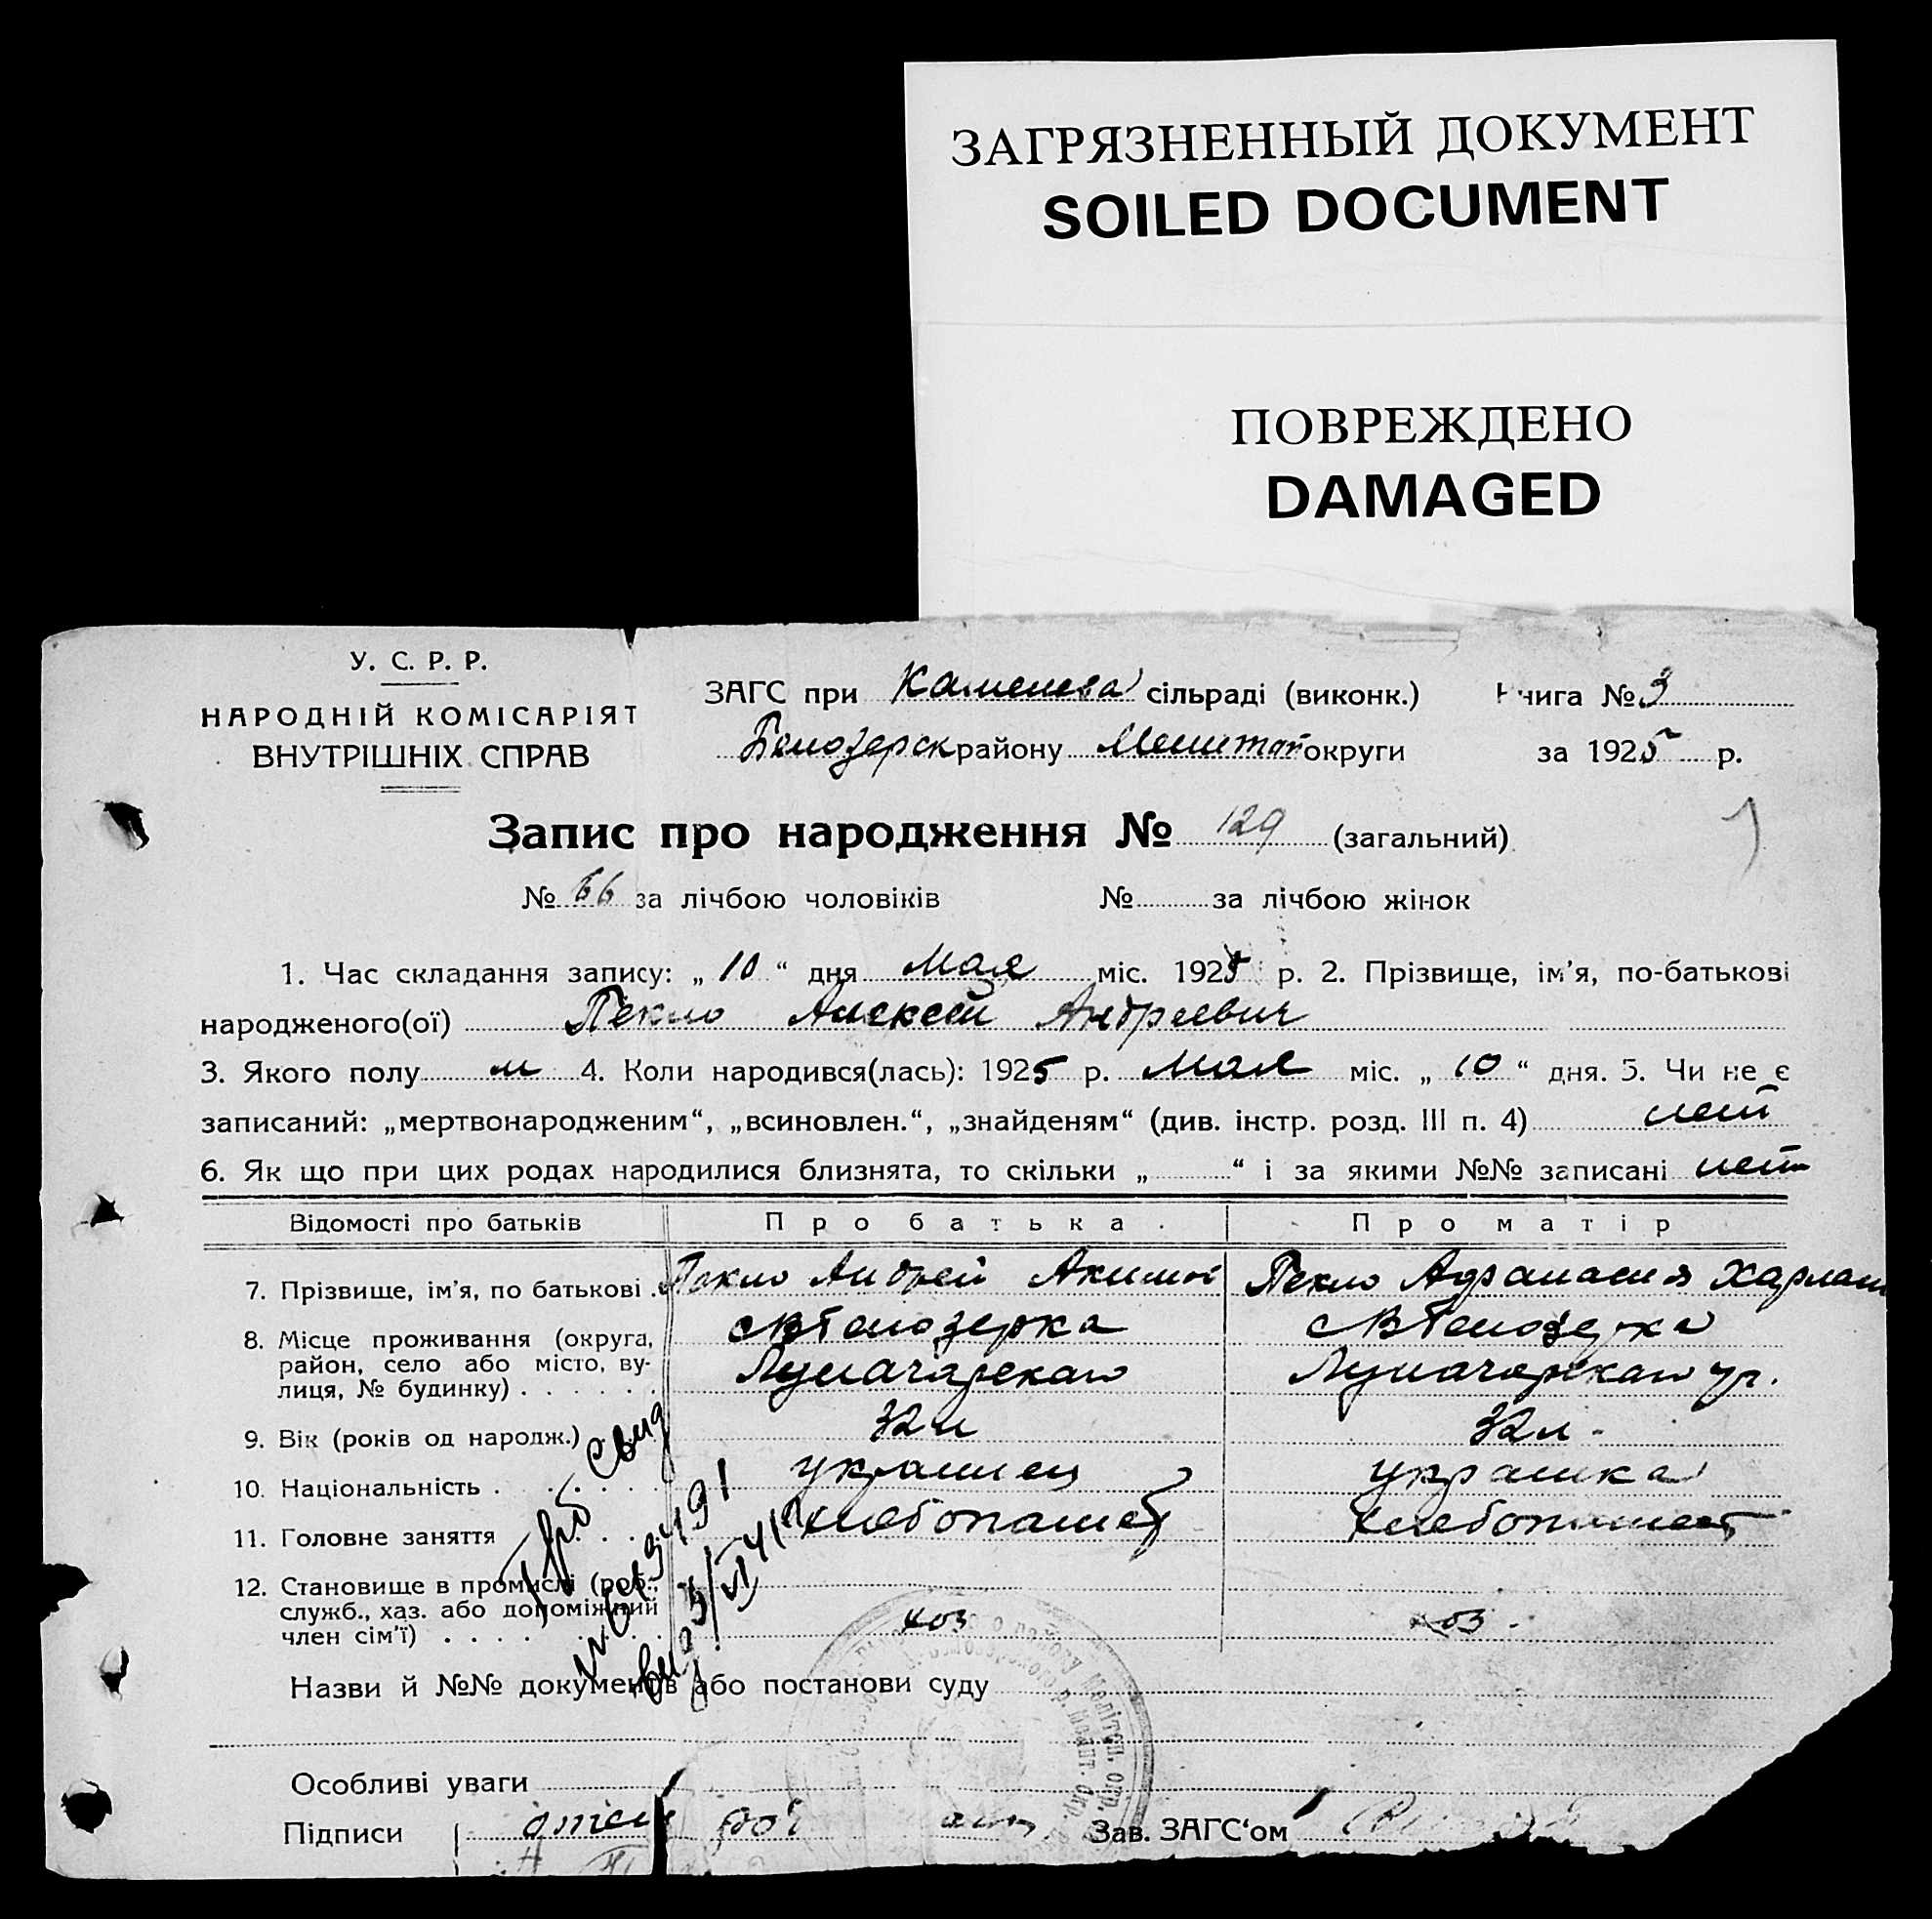 ЗАГРЯЗНЕННЫЙ ДОКУМЕНТ
SOILED DOCUMENT
ПОВРЕЖДЕНО
DAMAGED
У. С. Р. Р.
НАРОДНІЙ КОМІСАРІЯТ
ВНУТРІШНІХ СПРАВ
ЗАГС при Каменева сільраді (виконк.) Книга № 3
Белозерск району Мелитоп округи за 1925 р.
Запис про народження № 129 (загальний)
№ 66 за лічбою чоловіків № за лічбою жінок
1. Час складання запису: „ 10 “ дня Мая міс. 1925 р. 2. Прізвище, ім’я, по-батькові
народженого(ої) Пекло Алексей Андреевич
3. Якого полу м 4. Коли народився(лась): 1925 р. Мая міс. „ 10 “ дня. 5. Чи не є
записаний: „мертвонародженим“, „всиновлен.“, „знайденям“ (див. інстр. розд. III п. 4) нет
6. Як що при цих родах народилися близнята, то скільки „ “ і за якими №№ записані нет
Відомості про батьків Про батька. Про матір
7. Прізвище, ім’я, по батькові . Пекло Андрей Аким Пекло Афанасия Харлам
8. Місце проживання (округа, район, село або місто, вулиця, № будинку) . . . . . .
с Белозерка с Белозерка
Луначарскаго Луначарскаго ул.
9. Вік (років од народж.) 32 л 32 л.
10. Національність . украинец украинка
11. Головне заняття хлебопашец хлебопашест
12. Становище в промислі (роб., служб., хаз. або допоміжний член сім’ї) . . . . хоз хоз.
свид
Назви й №№ документів або постанови суду
Особливі уваги
Підписи отец
Зав. ЗАГС‘ом